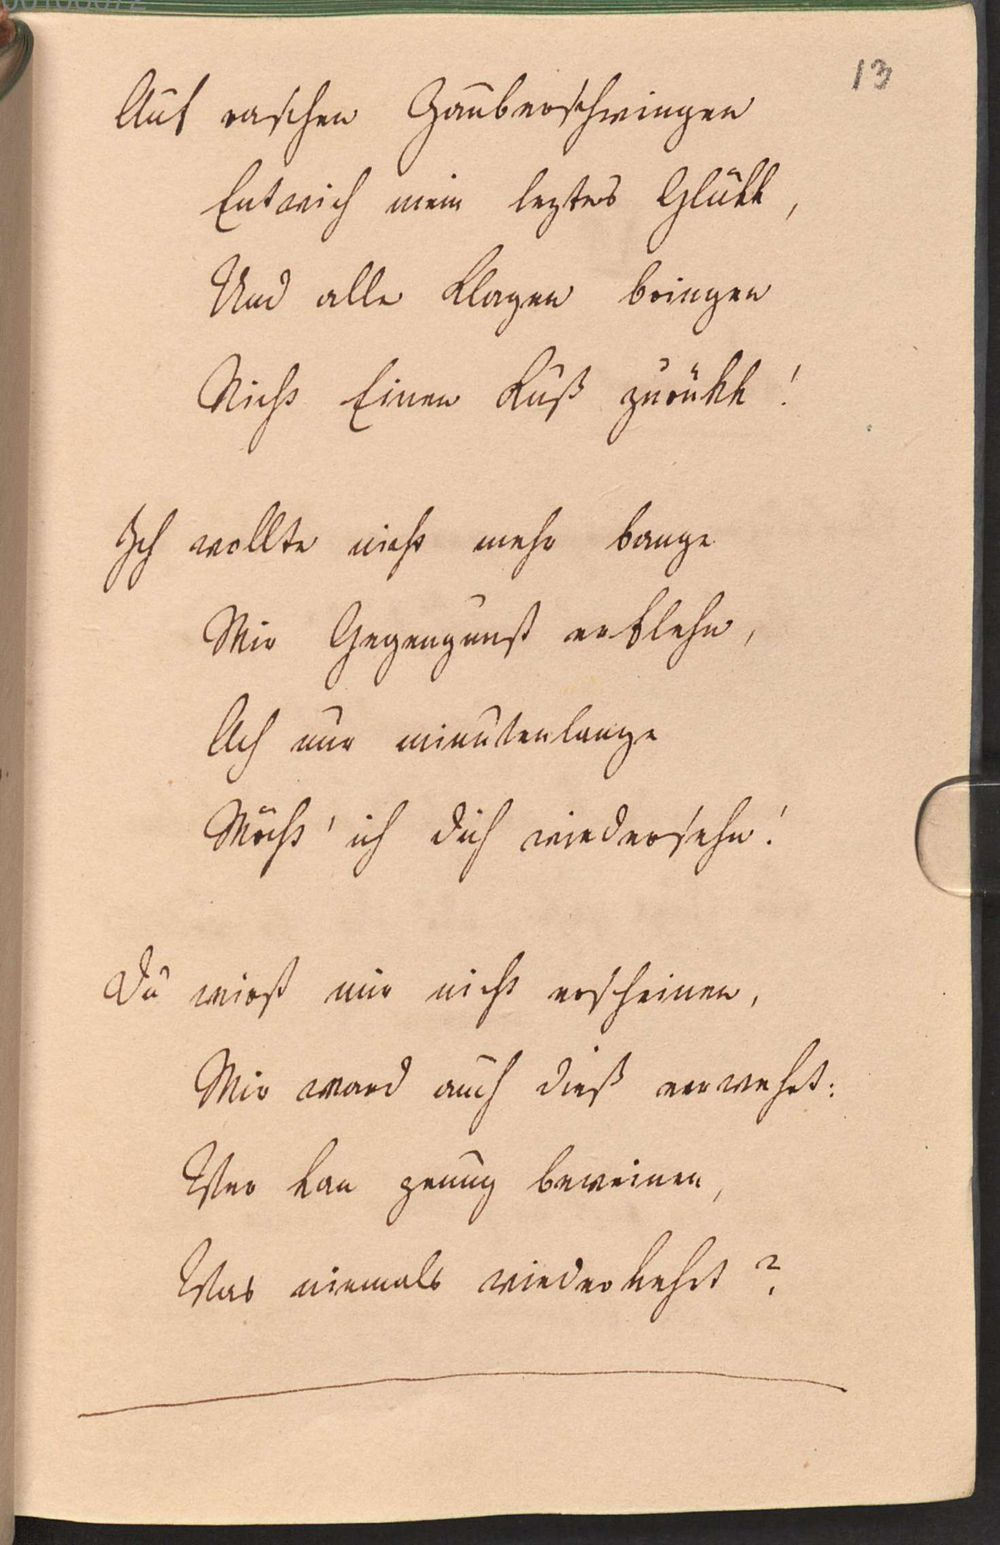 13
Auf raschen Zauberschwingen
Entwich mein leztes Glükk,
Und alle Klagen bringen
Nicht Einen Kuß zurükk!
Ich wollte nicht mehr bange
Mir Gegengunst erflehn,
Ach nur minutenlange
Möcht' ich dich wiedersehn!
Du wirst mir nicht erscheinen,
Mir ward auch dieß verwehrt:
Wer kan genug beweinen,
Was niemals wiederkehrt?